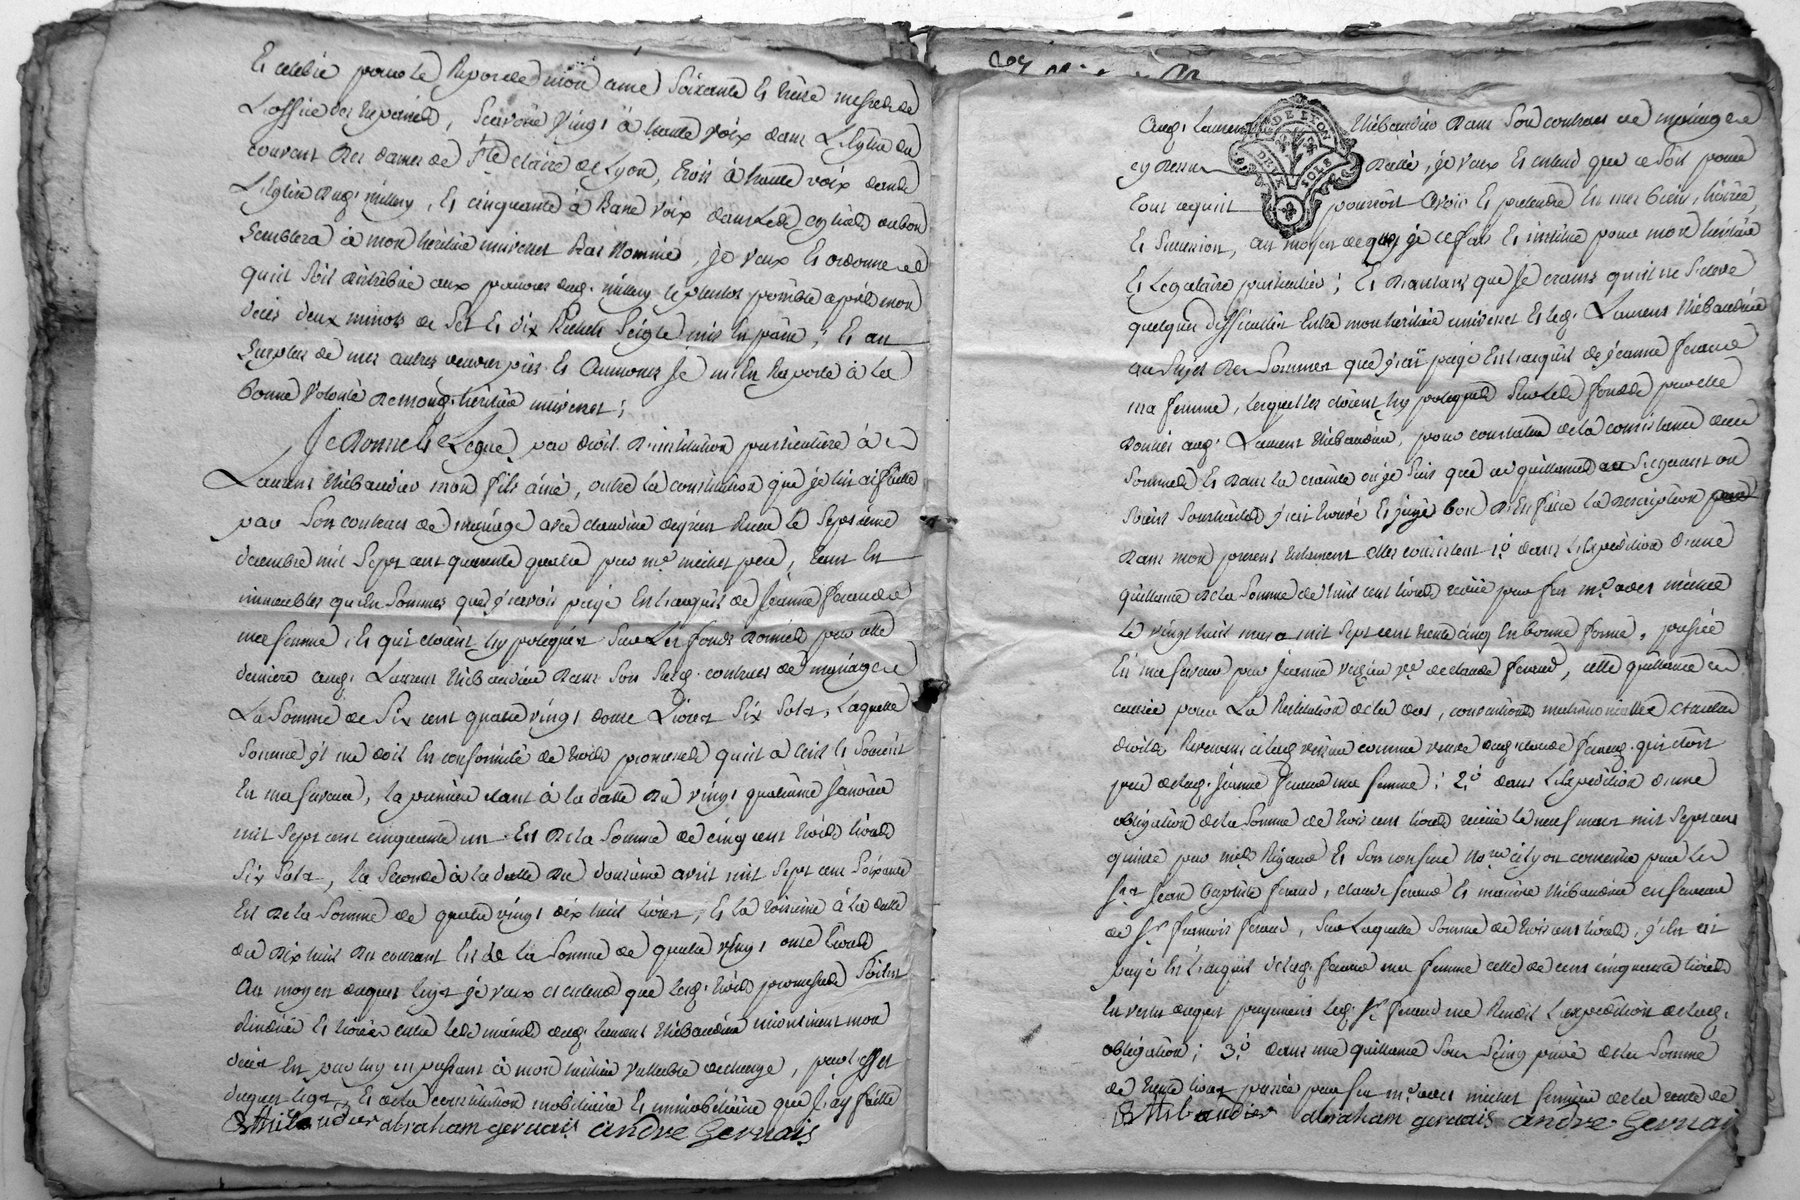 Et celebré pour le Repos de mon ame Soixante et treize messes de
L'office des trepassés, Scavoir Vingt à haute voix dans L'Eglise du
couvent des dames de Ste claire de Lyon, trois à haute voix dans
L'Eglise dud. millery, Et cinquante à Basse voix dans Lesd. Eglises ou bon
Semblera à mon héritier universel Bas Nommé, Je veux Et ordonne
quil soit distribué aux pauvres dud. millery le plustot possible après mon
décès deux minots de Sel Et dix Bichets Seigle mis En pain; Et au
Surplus de mes autres œuvres pies Et Aumones Je m'En Raporte à la
bonne Volonté de mond. héritier universel;
Je Donne Et Legue par droit d'institution particulière à
Laurent thibaudier mon fils ainé, outre la constitution que je lui ai faitte
par Son contract de mariage avec claudine Reçu Le Septième
decembre mil Sept cent quarante quatre par me michel pere, tant En
immeubles qu'En Sommes que j'avois payé En l'acquit de Jeanne ferand
ma femme, Et qui etoient hypotequés Sur Les fonds donnés par cette
derniere aud. Laurent thibaudier dans Son Susd. contract de mariage
La Somme de Six cent quatre vingt douze Livres Six Sols, Laquelle
Somme il me doit En conformité de trois promesses qu'il a Ecrit Et Souscrit
En ma faveur, la premiere etant à la datte du vingt quatrième Janvier
mil Sept cent cinquante un Et de la Somme de cinq cent trois livres
Six Sols, la Seconde à la datte du douzième avril mil Sept cent Soixante
Et de la Somme de quatre vingt dix huit livres, Et la troisième à la datte
du dix huit du courant Et de la Somme de quatre vingt onze livres
Au moyen duquel legs je veux et entend que lesd. trois promesses Soient
Et livrées entre les mains dud. laurent thibaudier incontinent mon
décès En par luy en passant à mon héritier Vallable décharge, pour l'effet
duquel legs, Et de la constitution mobiliaire Et immobiliaire que J'ay faitte
B thibaudier abraham gervais andré Gervais
Aud. laurent thibaudier dans Son contract de mariage
cy dessus datté, je veux Et entend que ce Soit pour
tout ce qu'il pourroit Avoir Et pretendre En mes biens, hoirie,
Et Succession, au moyen de quoy je le fais Et institue pour mon héritier
Et Legataire particulier; Et d'autant que Je crains qu'il ne S'eleve
quelques difficultés Entre mon héritier universel Et led. Laurent thibaudier
au Sujet des Sommes que j'ai payé En l'acquit de jeanne ferand
ma femme, lesquelles etoient hypotequées Sur les fonds par elle
donnés aud. Laurent thibaudier, pour constater de la consistance des
Sommes Et dans la crainte ou je Suis que les quittances ne S'egarent ou
Soient Soustraites j'ai trouvé Et jugé bon d'En faire la description
dans mon present testament elles consistent 1° dans L'Expedition d'une
quittance de la Somme de huit cent livres reçüe par feu me michel
le vingt huit mars mil Sept cent trente cinq En bonne forme, passée
En ma faveur par Jeanne ve de claude ferand, cette quittance
causée pour La Restitution de la dot, conventions matrimonialles et autres
droits Revenant à lad. comme veuve dud. claude ferand. qui etoit
pere de lad. Jeanne ferand ma femme; 2° dans L'Expedition d'une
obligation de la Somme de trois cent livres reçüe le neuf mars mil Sept cent
quinze par Rigaud Et Son confrere Nore à Lyon consentie par les
Srs Jean Baptiste ferand, claude ferand Et thibaudier en faveur
de Sr françois ferand, Sur Laquelle Somme de trois cent livres, j'En ai
payé En l'acquit de lad. ferand ma femme celle de cent cinquante livres
En vertu duquel payement led. Sr ferand me Rendit L'expedition de lad.
obligation; 3° dans une quittance Sous Seing privé de la Somme
de trente livres passée par feu me michel fermier de la rente de
B thibaudier abraham gervais andré Gervais
G. DE LYON
DEUX SOLS